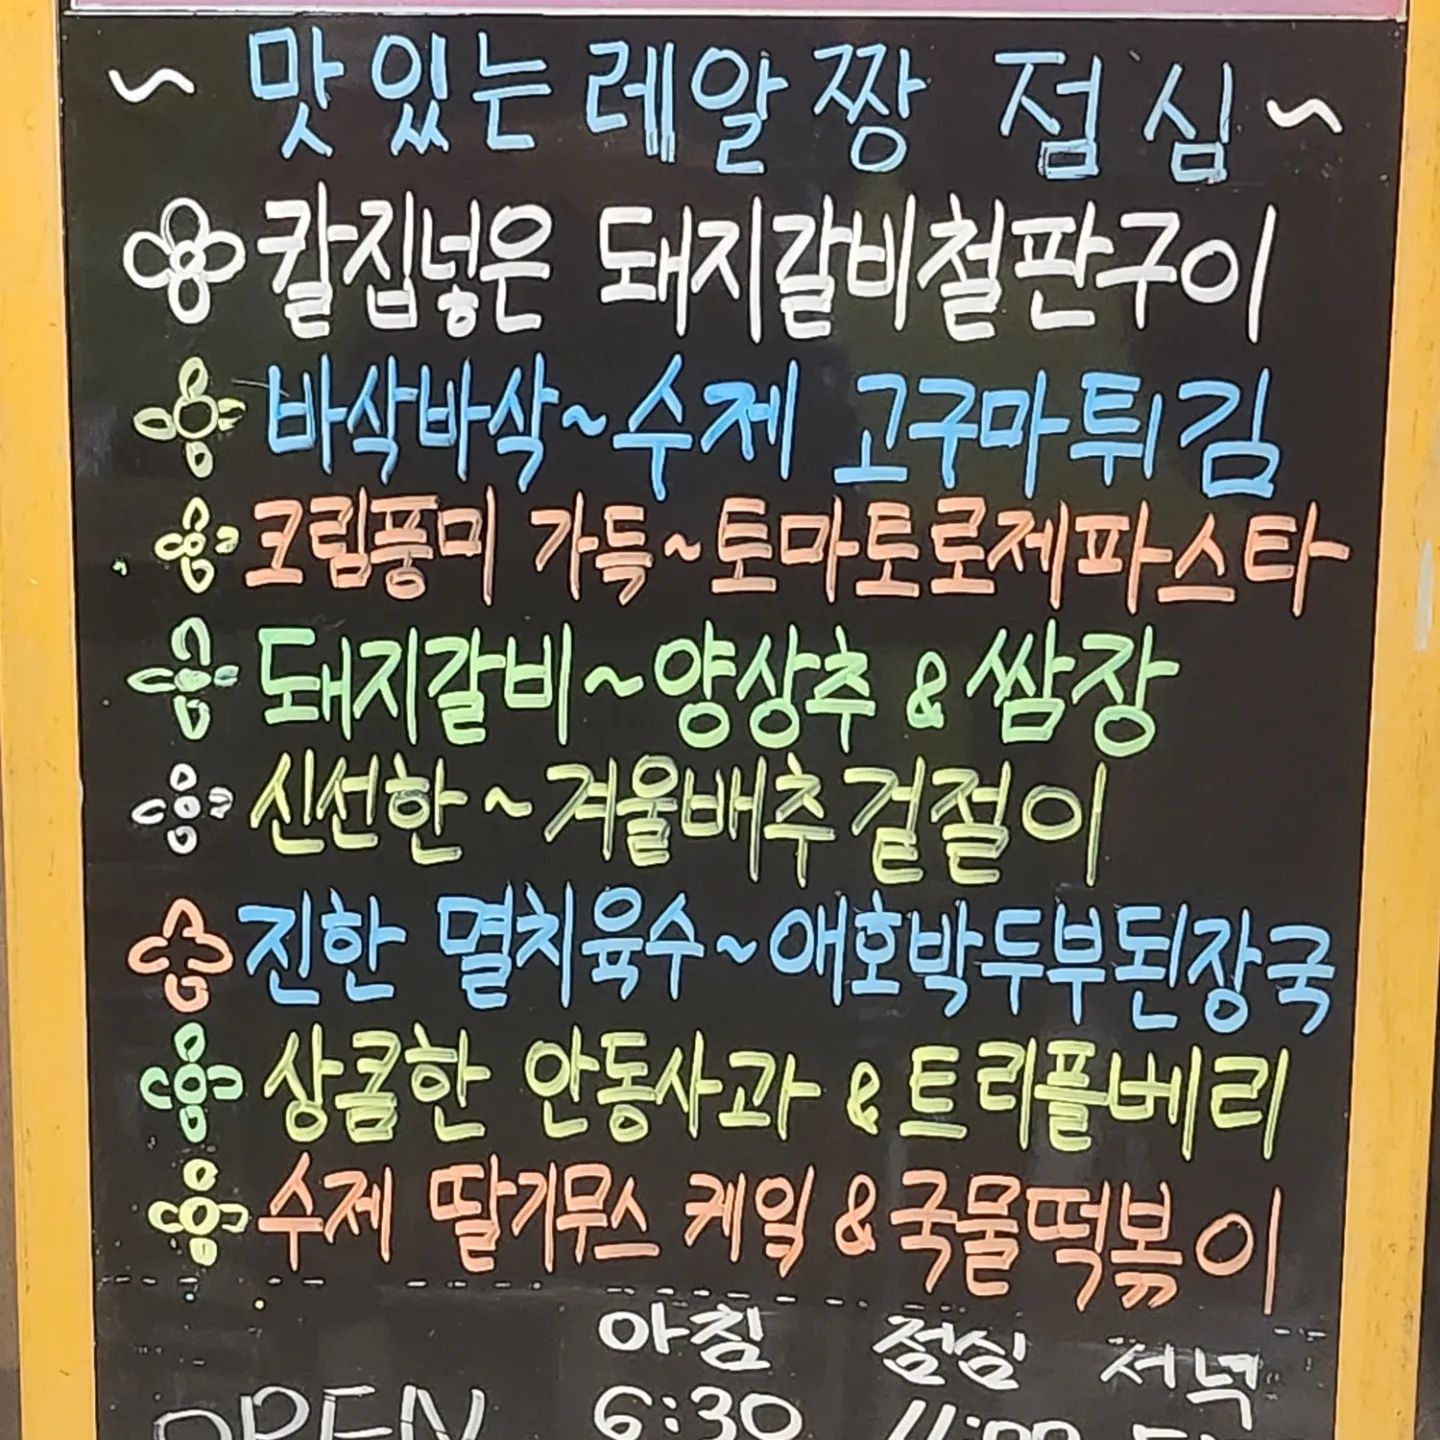 ~ 맛있는 레알짱 점심 ~
칼집넣은 돼지갈비철판구이
바삭바삭~수제 고구마튀김
크림풍미 가득~토마토로제파스타
돼지갈비~양상추 & 쌈장
신선한~겨울배추겉절이
진한 멸치육수~애호박두부된장국
상큼한 안동사과 & 트리플베리
수제 딸기무스 케잌 & 국물떡볶이
아침 점심 저녁
OPEN 6:30 11:00